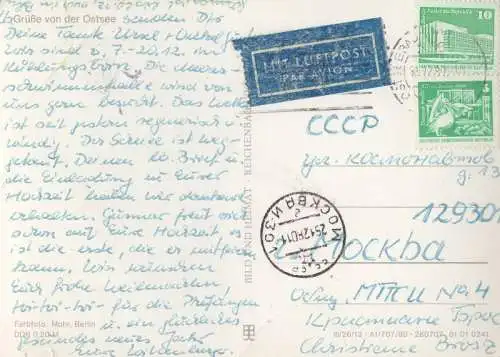 Grüße von der Ostsee senden Dir
Deine Tante Ursel + Onkel
Wir sind v. 7.-20.12. im
Kühlungsborn. Die Meeres-
schwimmhalle wird von
uns gern besucht. Das Wetter
ist seit gestern regnerisch u.
windig. Der Schnee ist weg-
getaut. Deinen Brief u.
die Einladung zu Eurer
Hochzeit haben wir dankend
erhalten. Gunnar freut sich
schon auf Eure Hochzeit es
ist die erste, die er mitfeiern
kann. Wir wünschen
Euch frohe Weihnachten
toi-toi-toi für die Prüfungen
u. ein glückliches
gesundes neues Jahr
Eure
Farbfoto: Mohr, Berlin
DDR 0,20 M
BILD UND HEIMAT REICHENBACH
MIT LUFTPOST
PAR AVION
10
5
СССР
ул. Космонавтов
д. 13
12930
Москва
МОСКВА И-301
Общ. МТСИ № 4
Кристиане Брос
Christiane Bros
IV/26/13 A1/707/80 280707 01 01 0241